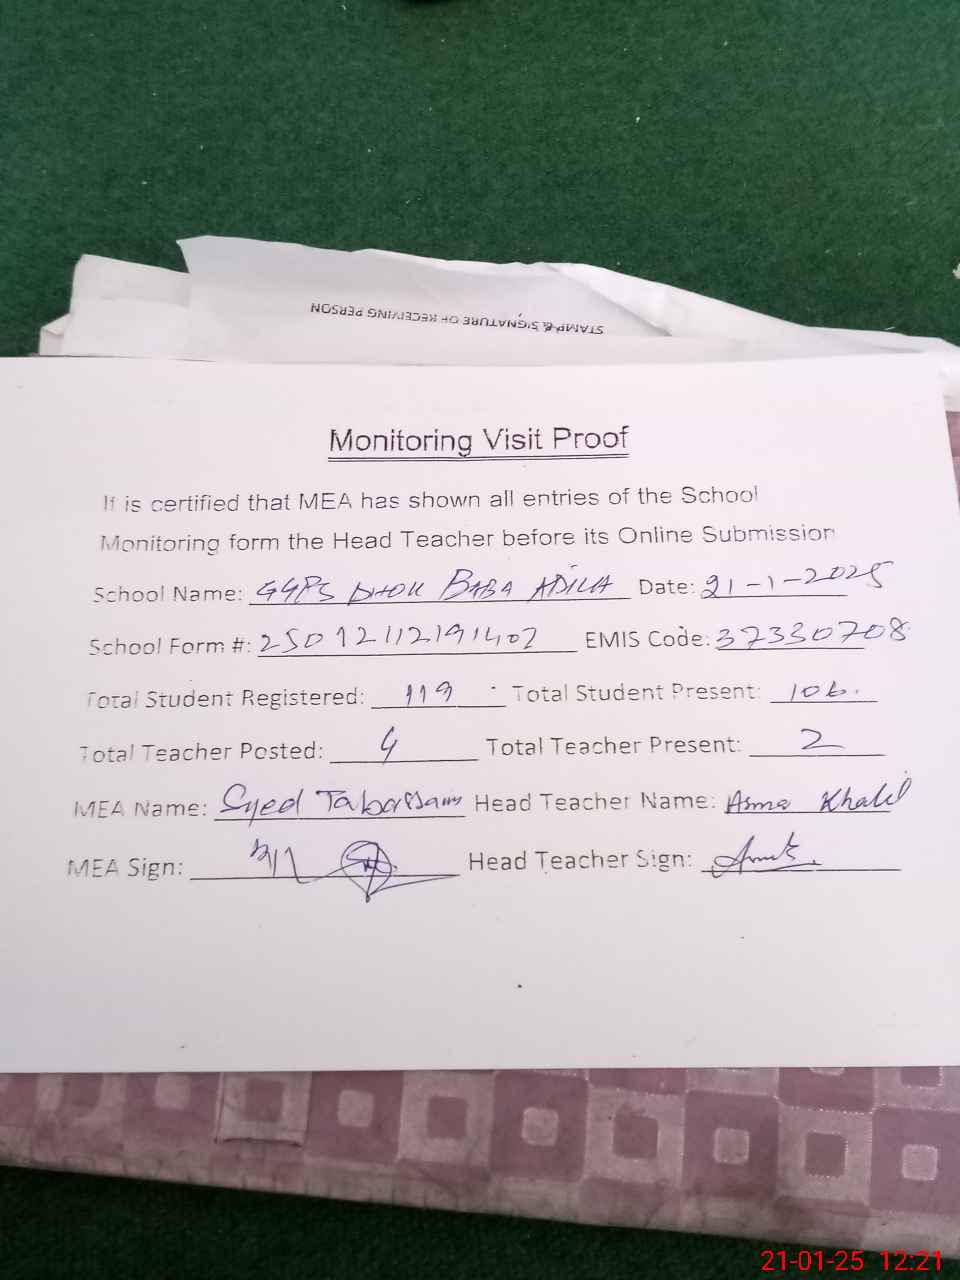 STAMP & SIGNATURE OF RECEIVING PERSON
Monitoring Visit Proof
It is certified that MEA has shown all entries of the School
Monitoring form the Head Teacher before its Online Submission
School Name: GGPS DHOK BABA ADILA Date: 21-1-2025
School Form #: 25012112191402 EMIS Code: 37330708
Total Student Registered: 119 Total Student Present: 106.
Total Teacher Posted: 4 Total Teacher Present: 2
MEA Name: Syed Tabassam Head Teacher Name: Asma Khalil
MEA Sign: Head Teacher Sign:
21-01-25 12:21